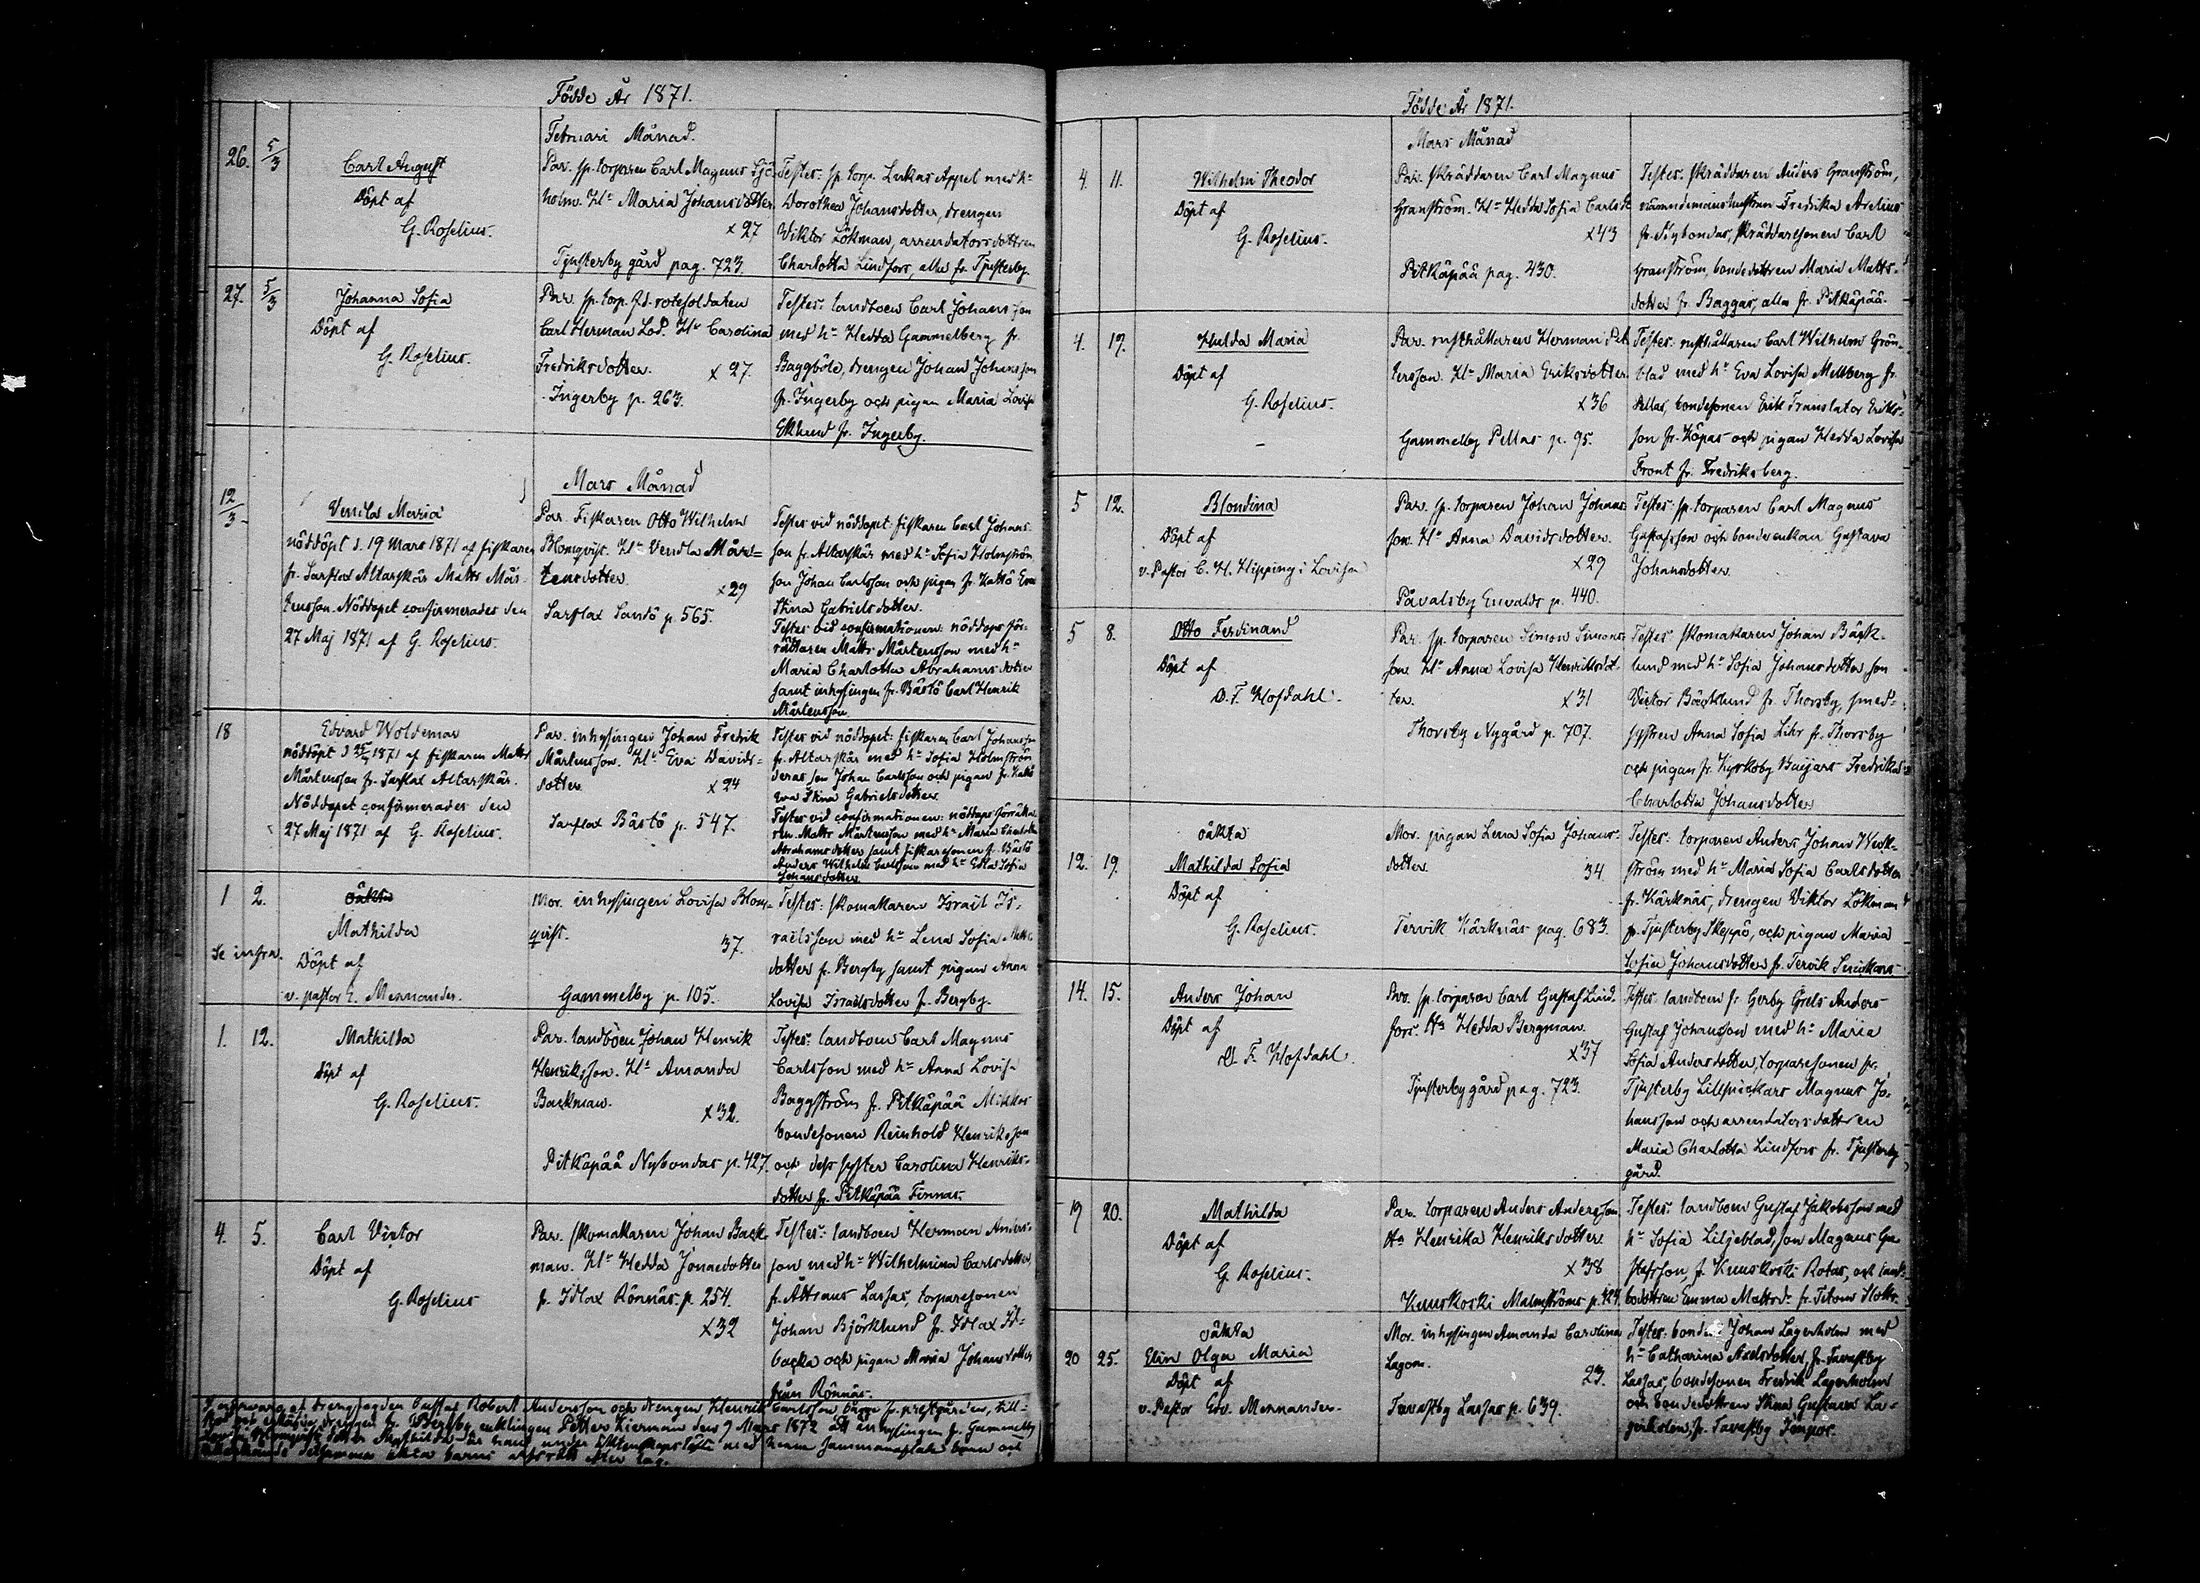 Födde År 1871.
Februari Månad.
26. 5/3
Carl August
Döpt af
G. Roselius.
Par. sp. torparen Carl Magnus Sjö-
holm. H:u Maria Johansdotter
x 27
Tjusterby gård pag. 723.
Testes: sp. torp. Lukas Appel med h:u
Dorothea Johansdotter, drengen
Viktor Lökman, arrendatorsdottren
Charlotta Lindfors, alla fr. Tjusterby.
27. 5/3
Johanna Sofia
Döpt af
G. Roselius.
Par. sp. torp. f.d. rotesoldaten
Carl Herman Lod. H:u Carolina
Fredriksdotter. x 27.
Ingerby p. 263.
Testes: landboen Carl Johansson
med h:u Hedda Gammelberg fr.
Baggböle, drengen Johan Johansson
fr. Ingerby och pigan Maria Lovisa
Eklund fr. Ingerby.
Mars Månad
12/3
Vendla Maria
nöddöpt d. 19 Mars 1871 af fiskaren
fr. Sarflax Altarskär Matts Mår-
tensson. Nöddopet confirmerades den
27 Maj 1871 af G. Roselius.
Par. Fiskaren Otto Wilhelm
Blomqvist. H:u Vendla Mår-
tensdotter.
x 29
Sarflax Sandö p. 565.
Testes vid nöddopet: fiskaren Carl Johans-
son fr. Altarskär med h:u Sofia Holmström
son Johan Carlsson och pigan fr. Kattö Eva
Stina Gabrielsdotter.
Testes vid confirmationen: nöddops för-
rättaren Matts Mårtensson med h:u
Maria Charlotta Abrahamsdotter
samt inhysingen fr. Båstö Carl Henrik
Mårtensson.
18
Edvard Woldemar
nöddöpt d 1871 af fiskaren Matts
Mårtensson fr. Sarflax Altarskär.
Nöddopet confirmerades den
27 Maj 1871 af G. Roselius.
Par. inhysingen Johan Fredrik
Mårtensson. H:u Eva Davids-
dotter. x 24
Sarflax Båstö p. 547.
Testes vid nöddopet: fiskaren Carl Johansson
fr. Altarskär med h:u Sofia Holmström
deras son Johan Carlsson och pigan fr. Kattö
Eva Stina Gabrielsdotter.
Testes vid confirmationen: nöddops förrätta-
ren Matts Mårtensson med h:u Maria Charlotta
Abrahamsdotter samt fiskaresonen fr. Båstö
Anders Wilhelm Carlsson med h:u Edla Sofia
Johansdotter.
1 2.
Se infra.
oäkta
Mathilda
Döpt af
v. pastor E. Mennander.
Mor. inhysingen Lovisa Blom-
qvist. 37.
Gammelby p. 105.
Testes: skomakaren Israel Is-
raelsson med h:u Lena Sofia Matts
dotter fr. Bergby samt pigan Anna
Lovisa Israelsdotter fr. Bergby.
1. 12.
Mathilda
Döpt af
G. Roselius.
Par. landboen Johan Henrik
Henriksson. H:u Amanda
Backman.
x 32.
Pitkäpää Nybondas p. 427.
Testes: landboen Carl Magnus
Carlsson med h:u Anna Lovisa
Baggström fr. Pitkäpää Mikkos
bondesonen Reinhold Henriksson
och dess syster Carolina Henriks-
dotter fr. Pitkäpää Finnas.
4. 5.
Carl Victor
Döpt af
G. Roselius
Par. skomakaren Johan Back-
man. H:u Hedda Jonaedotter
fr. Idlax Rönnäs p. 254.
x 32
Testes: landboen Herman Anders-
son med h:u Wilhelmina Carlsdotter,
fr. Åttraus Lassas, torparesonen
Johan Björklund fr. Idlax Id-
backa och pigan Maria Johansdotter
från Rönnäs.
I närvaro af drengen Gustaf Robert Andersson och drengen Henrik Carlsson
drengen fr. Bergby, enklingen Petter Hierman den 9 Mars 1872 att inhysingen fr. Gammelby
Födde År 1871.
Mars Månad
4. 11.
Wilhelm Theodor
Döpt af
G. Roselius.
Par. skräddaren Carl Magnus
Granström. H:u Hedda Sofia Carlsd:r
x 43
Pitkäpää pag. 430.
Testes: skräddaren Anders Granström,
nämndemanshustrun Fredrika Arelius
fr. Nybondas, skräddaresonen Carl
Granström, bondedottren Maria Matts-
dotter fr. Baggas, alla fr. Pitkäpää.
4. 19.
Hulda Maria
Döpt af
G. Roselius.
Par. rusthållaren Herman Pet
tersson. H:u Maria Eriksdotter
x 36
Gammelby Pellas p. 95.
Testes: rusthållaren Carl Wilhelm Grön-
blad med h:u Eva Lovisa Mellberg fr.
Pellas, bondesonen Erik Translator Eriks-
son fr. Köpas och pigan Hedda Lovisa
Front fr. Fredriksberg.
5 12.
Blondina
Döpt af
v. Pastor C. H. Hipping i Lovisa
Par. sp. torparen Johan Johans-
son. H:u Anna Davidsdotter.
x 29
Påvalsby Envalds p. 440.
Testes: sp. torparen Carl Magnus
Gustafsson och bondeenkan Gustava
Johansdotter.
5 8.
Otto Ferdinand
Döpt af
D. F. Hofdahl.
Par. sp. torparen Simon Simons-
son H:u Anna Lovisa Henriksdot-
ter. x 31
Thorsby Nygård p. 707.
Testes: skomakaren Johan Bäck-
lund med h:u Sofia Johansdotter, son
Victor Bäcklund fr. Thorsby, smed-
systren Anna Sofia Lihr fr. Thorsby
och pigan fr. Kyrkoby Baijars Fredrika
Charlotta Johansdotter
12. 19.
oäkta
Mathilda Sofia
Döpt af
G. Roselius.
Mor. pigan Lena Sofia Johans-
dotter. 34.
Tervik Kärknäs pag. 683.
Testes: torparen Anders Johan Weck-
ström med h:u Maria Sofia Carlsdotter
fr. Kärknäs, drengen Viktor Lökman
fr. Tjusterby Skeppö, och pigan Maria
Sofia Johansdotter fr. Tervik
14. 15.
Anders Johan
Döpt af
D. F. Hofdahl.
Par. sp. torparen Carl Gustaf Lind-
fors. H:u Hedda Bergman.
x 37
Tjusterby gård pag. 723.
Testes: landboen fr. Gerby Grels Anders
Gustaf Johansson med h:u Maria
Sofia Andersdotter, torparesonen fr.
Tjusterby Magnus Jo-
hansson och arrendatorsdottren
Maria Charlotta Lindfors fr. Tjusterby
gård.
19 20.
Mathilda
Döpt af
G. Roselius.
Par. torparen Anders Andersson
H:u Henrika Henriksdotter
x 38
Kuuskoski Malmströms p. 424.
Testes: landboen Gustaf Jakobsson med
h:u Sofia Liljeblad, son Magnus Gu-
stafsson, fr. Kuuskoski Rotas, och land-
bodottren Emma Mattsd:r fr.
20 25.
oäkta
Elin Olga Maria
Döpt af
v. Pastor Edv. Mennander.
Mor. inhysingen Amanda Carolina
Lagom.
23.
Tavastby Lassas p. 639.
Testes: bonden Johan Lagerholm med
h:u Catharina Axelsdotter, fr. Tavastby
Lassas, bondesonen Fredrik Lagerholm
och bondedottren Stina Gustava La-
gerholm, fr. Tavastby Jompas.